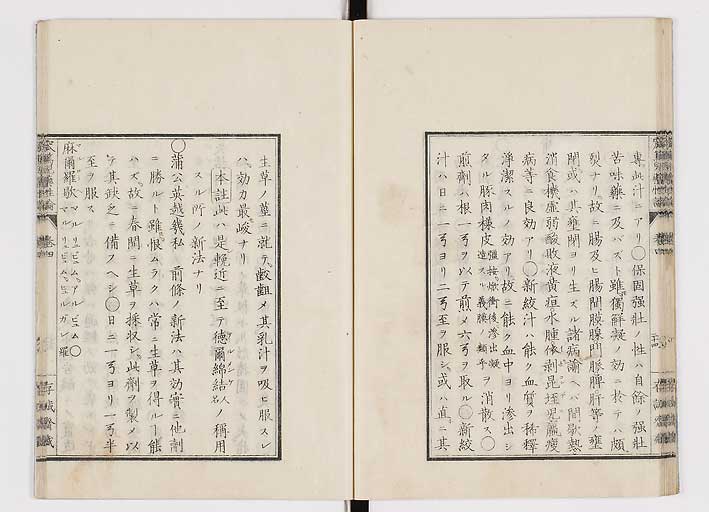 專此汁ニアリ○保固强壯ノ性ハ自餘ノ强壯
苦味藥ニ及バズト雖獨觧凝ノ効ニ於テハ頗
烈ナリ故ニ腸及ヒ腸間膜腺門脈脾肝等ノ壅
閉或ハ其壅閉ヨリ生ズル諸病諭ヘハ間歇熱
消食機虛弱酸敗液黄疸水腫依剥昆垤兒羸瘦
病等ニ良効アリ○新絞汁ハ能ク血質ヲ稀釋
淨潔スルノ効アリ故ニ能ク血中ヨリ滲出シ
タル豚肉樣皮ヲ消散ス○
煎劑ハ根一弓ヲ以テ煎メ六弓ヲ取ル○新絞
汁ハ日ニ一弓ヨリ二弓至ヲ服シ或ハ直ニ其
生草ノ莖ニ就テ齩齟メ其乳汁ヲ吸ヒ服スレ
ハ効力最峻ナリ
本註此ハ是輓近ニ至テ德爾綿結人名ノ稱用
スル所ノ新法ナリ
○蒲公英越幾私ノ前條ノ新法ハ其効實ニ他劑
ニ勝ルト雖恨ムラクハ常ニ生草ヲ得ルー能
ハズ故ニ春間ニ生草ヲ採収シ此劑ヲ製メ以
テ其缺乏ニ備フヘシ○日ニ一弓ヨリ一弓半
至ヲ服ス
麻爾羅歇 マルリュビム、アルビュム○
卷四